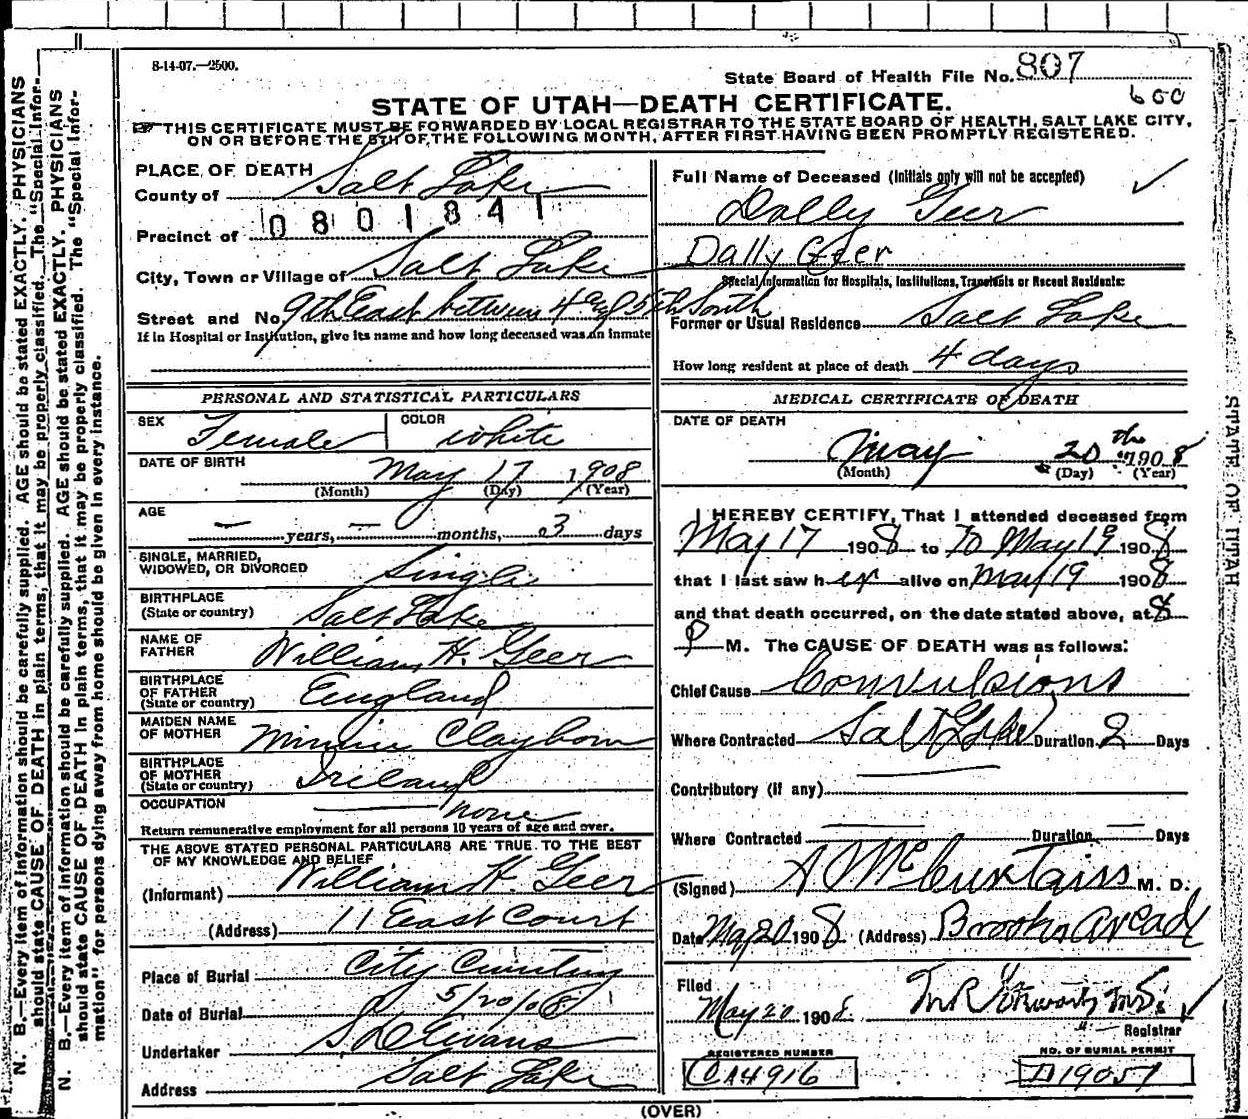 8-14-07.—2500.
State Board of Health File No. 807
600
STATE OF UTAH—DEATH CERTIFICATE.
THIS CERTIFICATE MUST BE FORWARDED BY LOCAL REGISTRAR TO THE STATE BOARD OF HEALTH, SALT LAKE CITY,
ON OR BEFORE THE 5TH OF THE FOLLOWING MONTH, AFTER FIRST HAVING BEEN PROMPTLY REGISTERED.
PLACE OF DEATH
County of Salt Lake
0801841
Precinct of
City, Town or Village of Salt Lake
Street and No. 9th East between 4 and 5th South
If in Hospital or Institution, give its name and how long deceased was an inmate
PERSONAL AND STATISTICAL PARTICULARS
SEX Female COLOR white
DATE OF BIRTH May 17 1908
(Month) (Day) (Year)
AGE — years, — months, 3 days
SINGLE, MARRIED,
WIDOWED, OR DIVORCED Single
BIRTHPLACE
(State or country) Salt Lake
NAME OF
FATHER William H. Geer
BIRTHPLACE
OF FATHER
(State or country) England
MAIDEN NAME
OF MOTHER Minnie Clayborn
BIRTHPLACE
OF MOTHER
(State or country) Ireland
OCCUPATION none
Return remunerative employment for all persons 10 years of age and over.
THE ABOVE STATED PERSONAL PARTICULARS ARE TRUE TO THE BEST
OF MY KNOWLEDGE AND BELIEF
(Informant) William H. Geer
(Address) 11 East Court
Place of Burial City Cemetery
Date of Burial 5/20/08
Undertaker S D Evans
Address Salt Lake
Full Name of Deceased (Initials only will not be accepted)
Dally Geer
Dally Geer
Special Information for Hospitals, Institutions, Transients or Recent Residents:
Former or Usual Residence Salt Lake
How long resident at place of death 4 days
MEDICAL CERTIFICATE OF DEATH
DATE OF DEATH
May 20th 1908
(Month) (Day) (Year)
I HEREBY CERTIFY, That I attended deceased from
May 17 1908 to To May 19 1908
that I last saw her alive on May 19 1908
and that death occurred, on the date stated above, at 8
P M. The CAUSE OF DEATH was as follows:
Chief Cause Convulsions
Where Contracted Salt Lake Duration 2 Days
Contributory (if any)
Where Contracted — Duration — Days
(Signed) M. D.
Date May 20 1908 (Address) Brooks Arcade
Filed
May 20 1908
Registrar
REGISTERED NUMBER
A4916
NO. OF BURIAL PERMIT
D19057
(OVER)
N. B.—Every item of information should be carefully supplied. AGE should be stated EXACTLY. PHYSICIANS
should state CAUSE OF DEATH in plain terms, that it may be properly classified. The "Special Infor-
N. B.—Every item of information should be carefully supplied. AGE should be stated EXACTLY. PHYSICIANS
should state CAUSE OF DEATH in plain terms, that it may be properly classified. The "Special Infor-
mation" for persons dying away from home should be given in every instance.
STATE OF UTAH